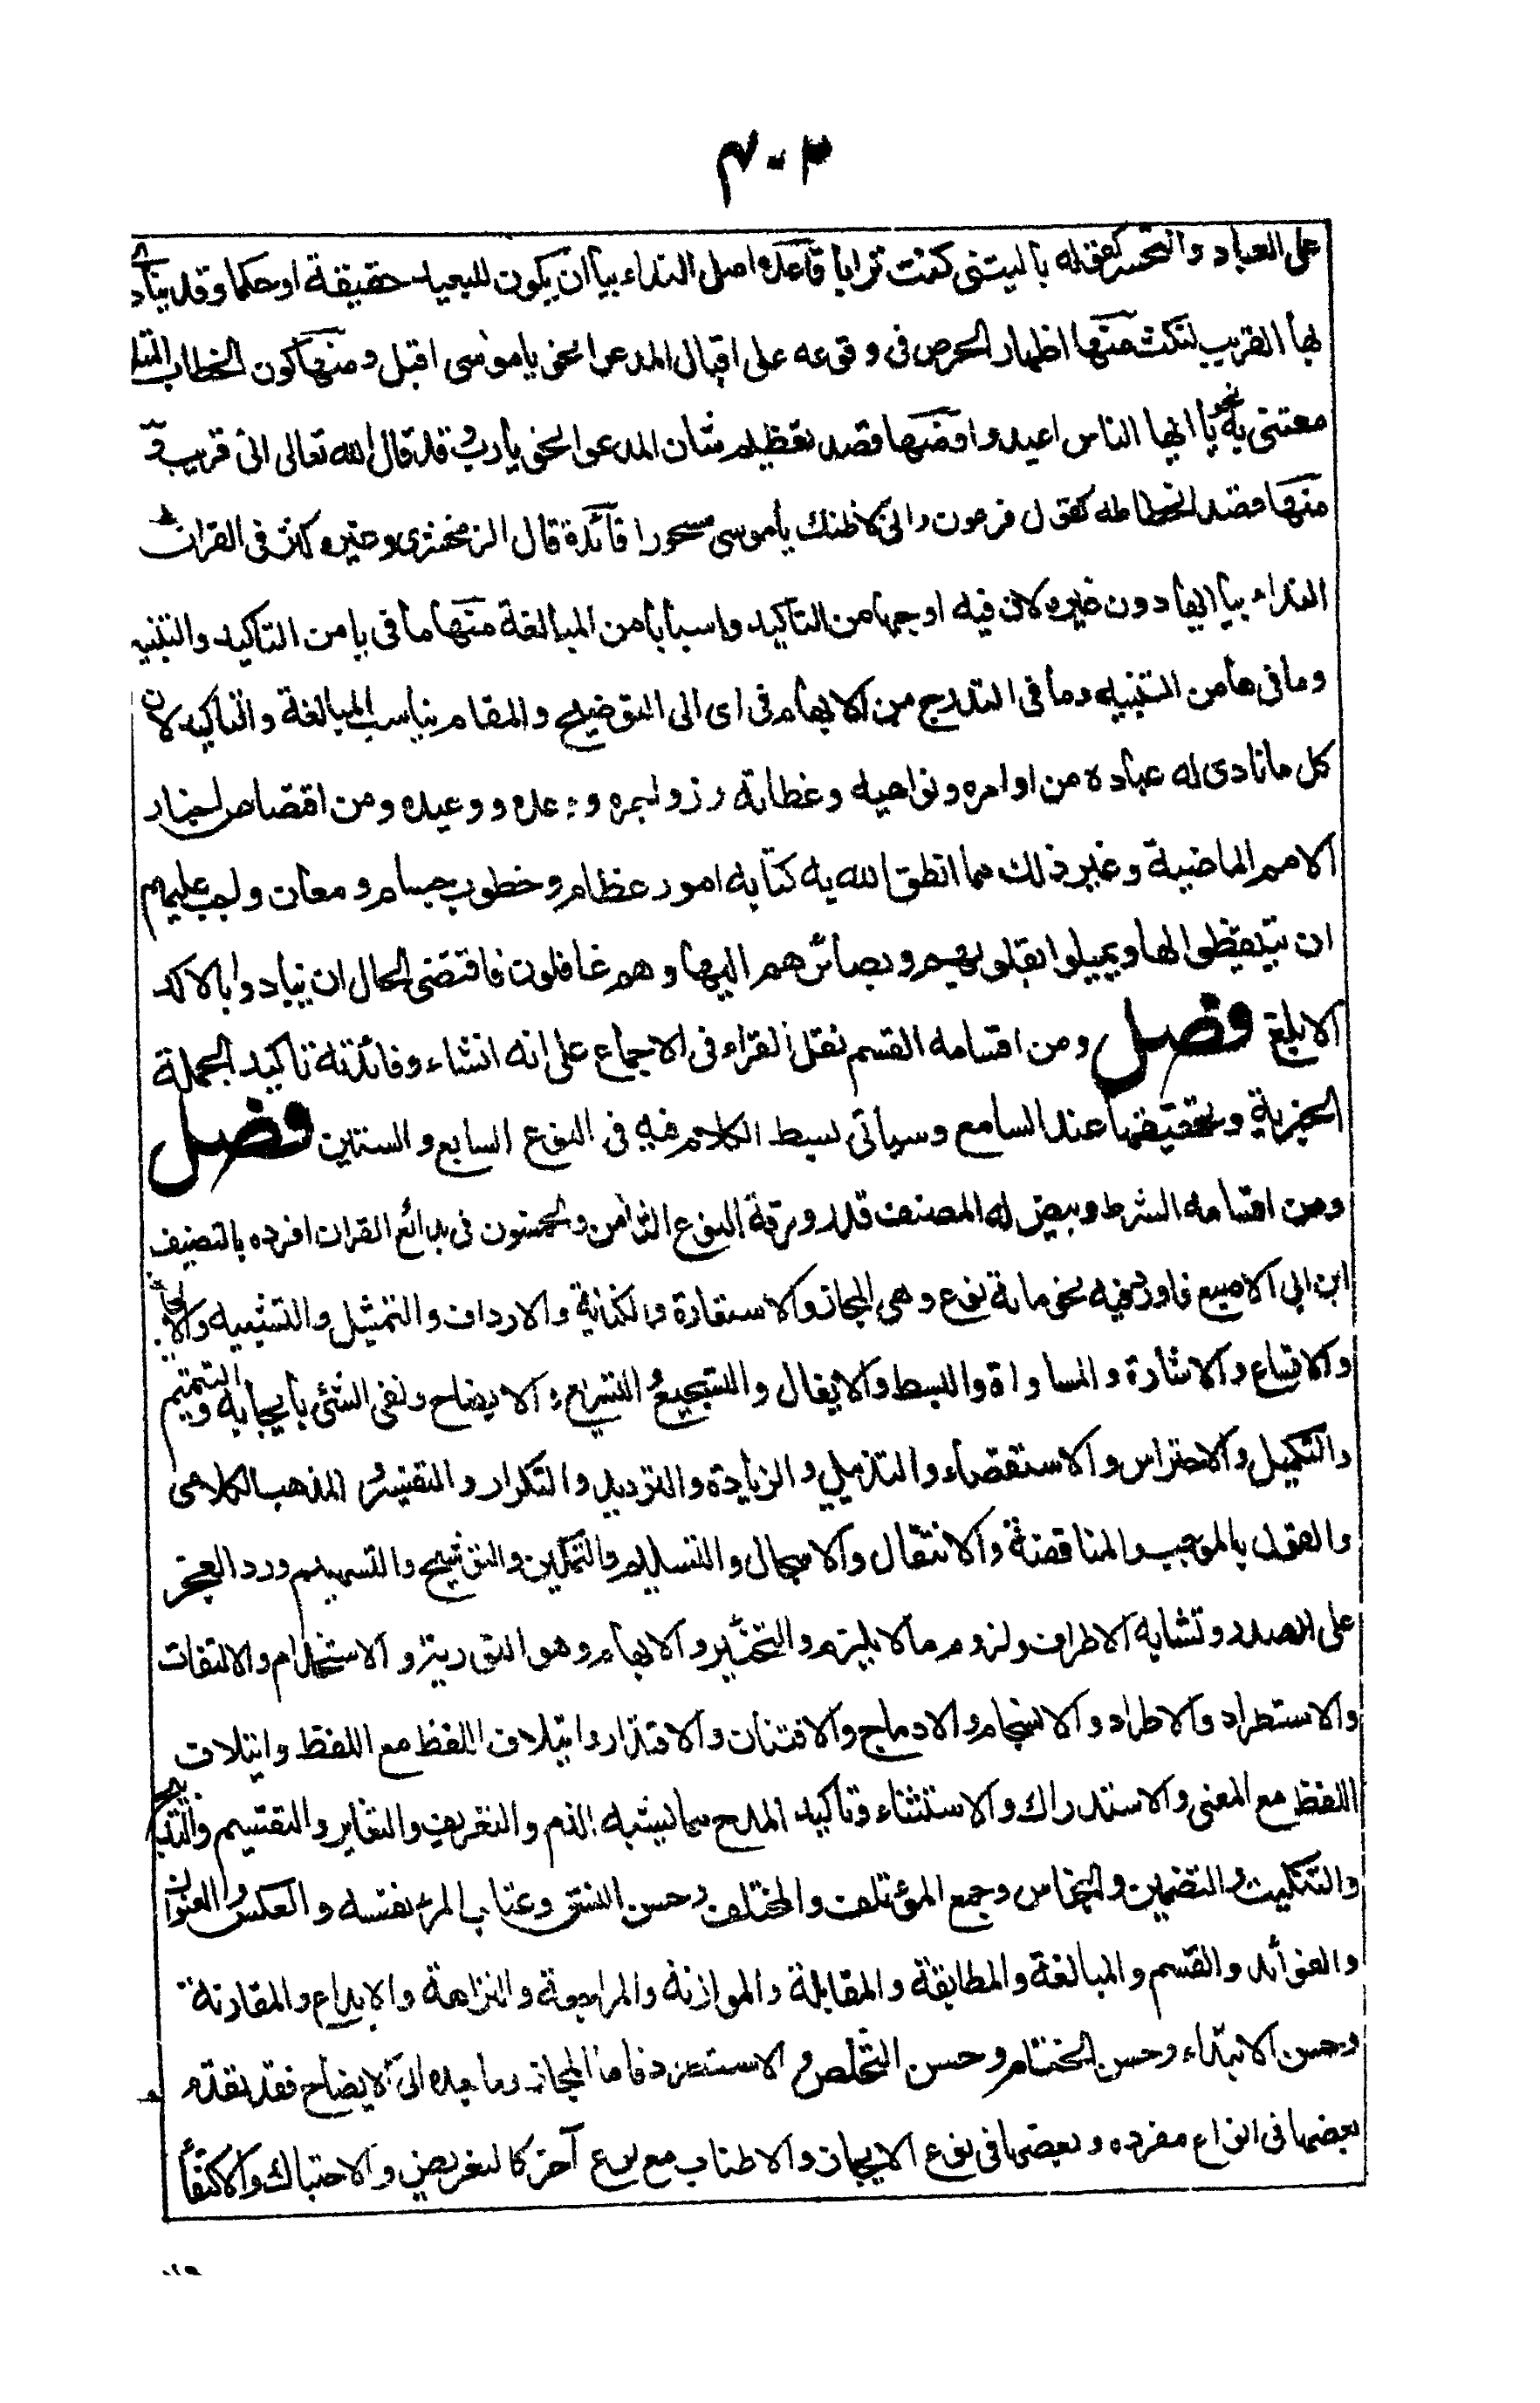 ٣٠٣
على العباد والتحسر كقوله يا ليتنى كنت ترابا قاعدة اصل النداء بيا ان يكون للبعيد حقيقة او حكما وقد ينادى
بها القريب لنكت منها اظهار الحرص فى وقوعه على اقبال المدعو نحو يا موسى اقبل ومنها كون الخطاب المتلو
معتنى به نحو يا ايها الناس اعبدوا ومنها قصد تعظيم شان المدعو نحو يا رب وقد قال الله تعالى انى قريب و
منها قصد انحطاطه كقول فرعون وانى لاظنك ياموسى مسحورا فائدة قال الزمخشرى وغيره كثر فى القرات
النداء بيا ايها دون غيره لان فيه اوجها من التاكيد واسبابا من المبالغة منها ما فى يا من التاكيد والتنبيه
وما فى ها من التنبيه وما فى التدرج من الابهام فى اى الى التوضيح والمقام يناسب المبالغة والتاكيد لان
كل ما نادى له عباده من اوامره ونواهيه وعظاته وزواجره ووعده ووعيده ومن اقتصاص اخبار
الامم الماضية وغير ذلك مما انطق الله به كتابه امور عظام وخطوب جسام ومعان واجب عليهم
ان يتيقظوا لها ويميلوا بقلوبهم وبصائرهم اليها وهم غافلون فاقتضى الحال ان ينادوا بالاكد
الابلغ فصل ومن اقسامه القسم نقل القراء فى الاجماع على انه انشاء وفائدته تاكيد الجملة
الخبرية وتحقيقها عند السامع وسياتى بسط الكلام فيه فى النوع السابع والستين فصل
ومن اقسامه الشرط وبيض له المصنف قدر ورقة النوع الثامن والخمسون فى بدائع القران افرده بالتصنيف
ابن ابى الاصبع فاورد فيه نحو مائة نوع وهى المجاز والاستعارة والكناية والارداف والتمثيل والتشبيه والايجاز
والاتساع والاشارة والمساواة والبسط والايغال والتسجيع والتسريع والايضاح ونفى الشئ بايجابه والتتميم
والتكميل والاحتراس والاستقصاء والتذييل والزيادة والترديد والتكرار والتفسير والمذهب الكلامى
والقول بالموجب والمناقضة والانتقال والاسجال والتسليم والتمكين والتوشيح والتسهيم ورد العجز
على الصدر وتشابه الاطراف ولزوم مالا يلزم والتخيير والابهام وهو التورية والاستخدام والالتفات
والاستطراد والاطراد والانسجام والادماج والافتنان والاقتدار وايتلاف اللفظ مع اللفظ وايتلاف
اللفظ مع المعنى والاستدراك والاستثناء وتاكيد المدح بما يشبه الذم والتفريف والتغاير والتقسيم والتدبيج
والتنكيت والتضمين والجناس وجمع المؤتلف والمختلف وحسن النسق وعتاب المرء نفسه والعكس والعنوان
والفرائد والقسم والمبالغة والمطابقة والمقابلة والموازنة والمراجعة والنزاهة والابداع والمقارنة
وحسن الابتداء وحسن الختام وحسن التخلص والاستطراد فاما المجاز وما بعده الى الايضاح فقد تقدم
بعضها فى انواع مفرده وبعضها فى نوع الايجاز والاطناب مع نوع آخر كالتعريض والاحتباك والاكتفا